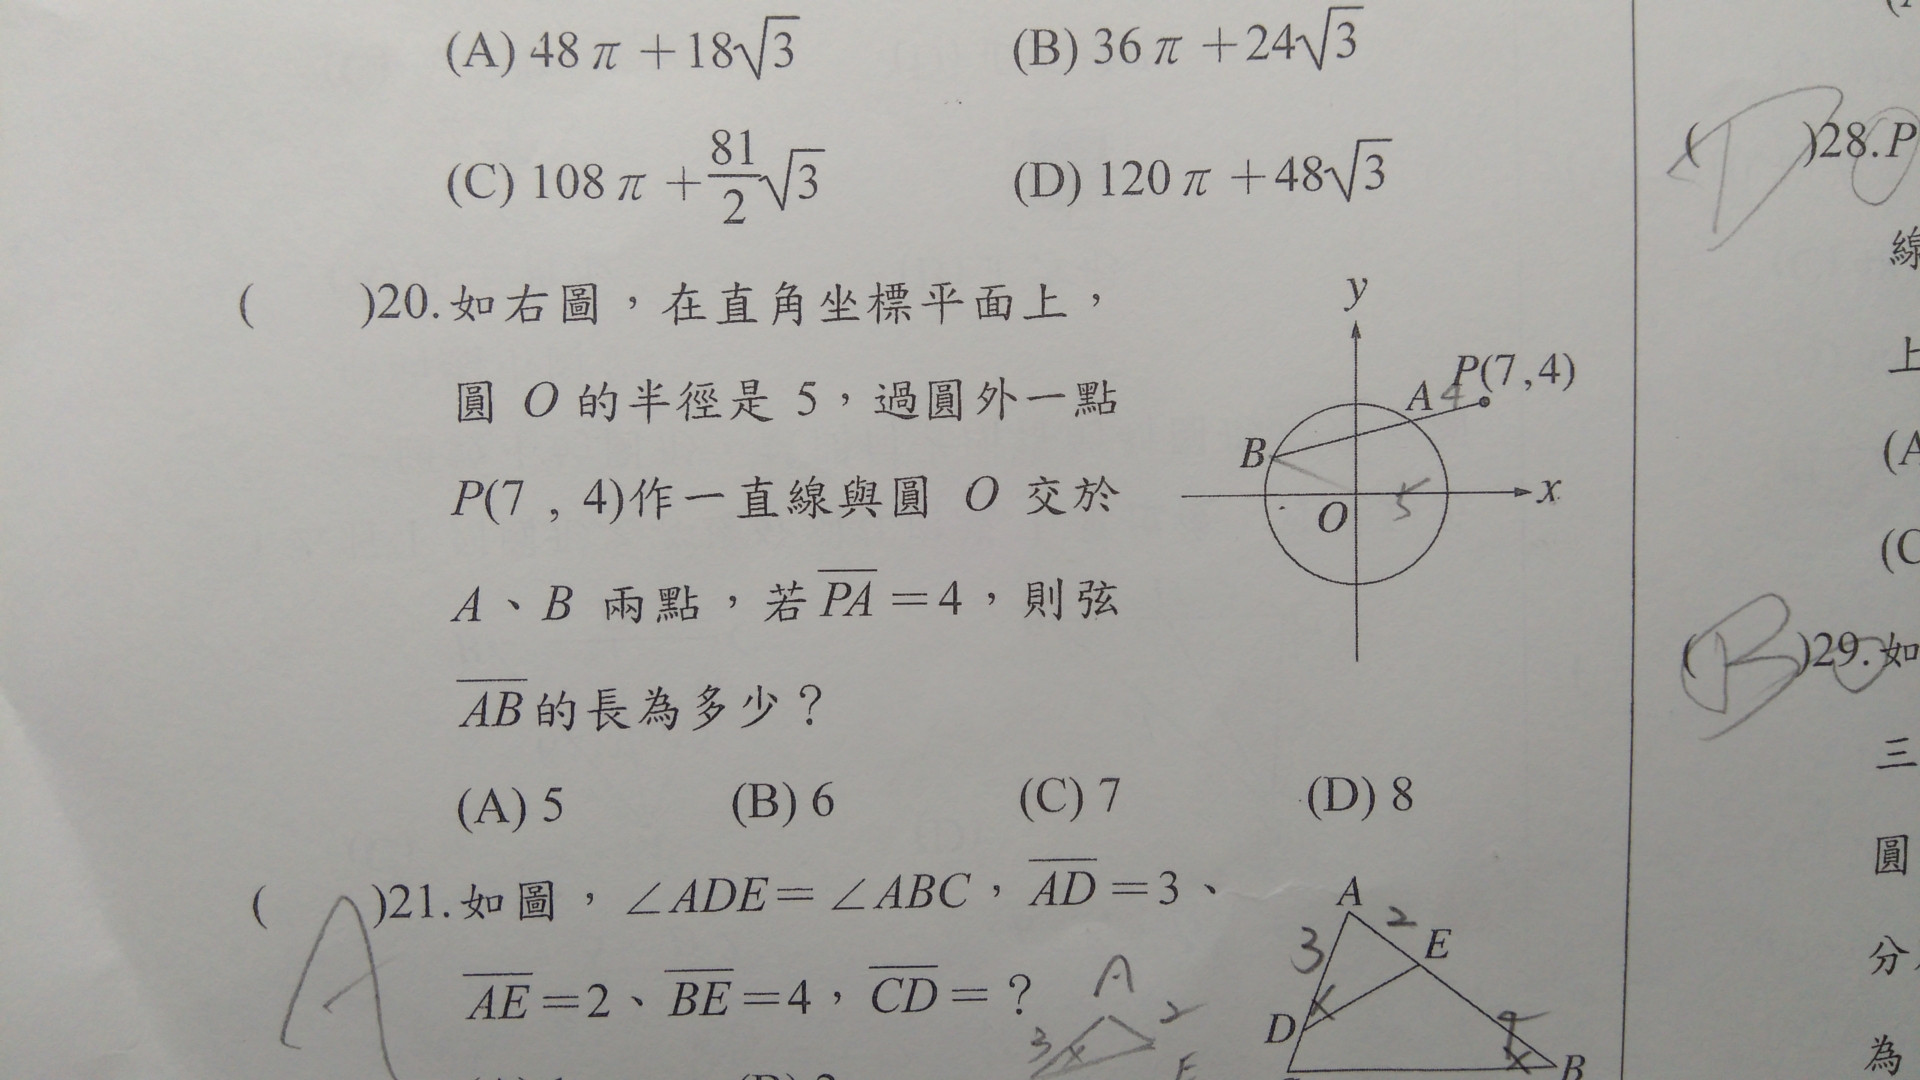 (A) 48π+18√3 (B) 36π+24√3
(C) 108π+81/2√3 (D) 120π+48√3
( )20.如右圖，在直角坐標平面上，
圓 O 的半徑是 5，過圓外一點
P(7 , 4)作一直線與圓 O 交於
A、B 兩點，若PA=4，則弦
AB的長為多少？
(A) 5 (B) 6 (C) 7 (D) 8
y
P(7,4)
A 4
B
O 5 x
( A )21.如圖，∠ADE=∠ABC，AD=3、
AE=2、BE=4，CD=？
A
2
3
E
D
x
4
x
B
A
2
3
x
E
( D )28.P
線
上
(A
(C
( B )29.如
三
圓
分
為